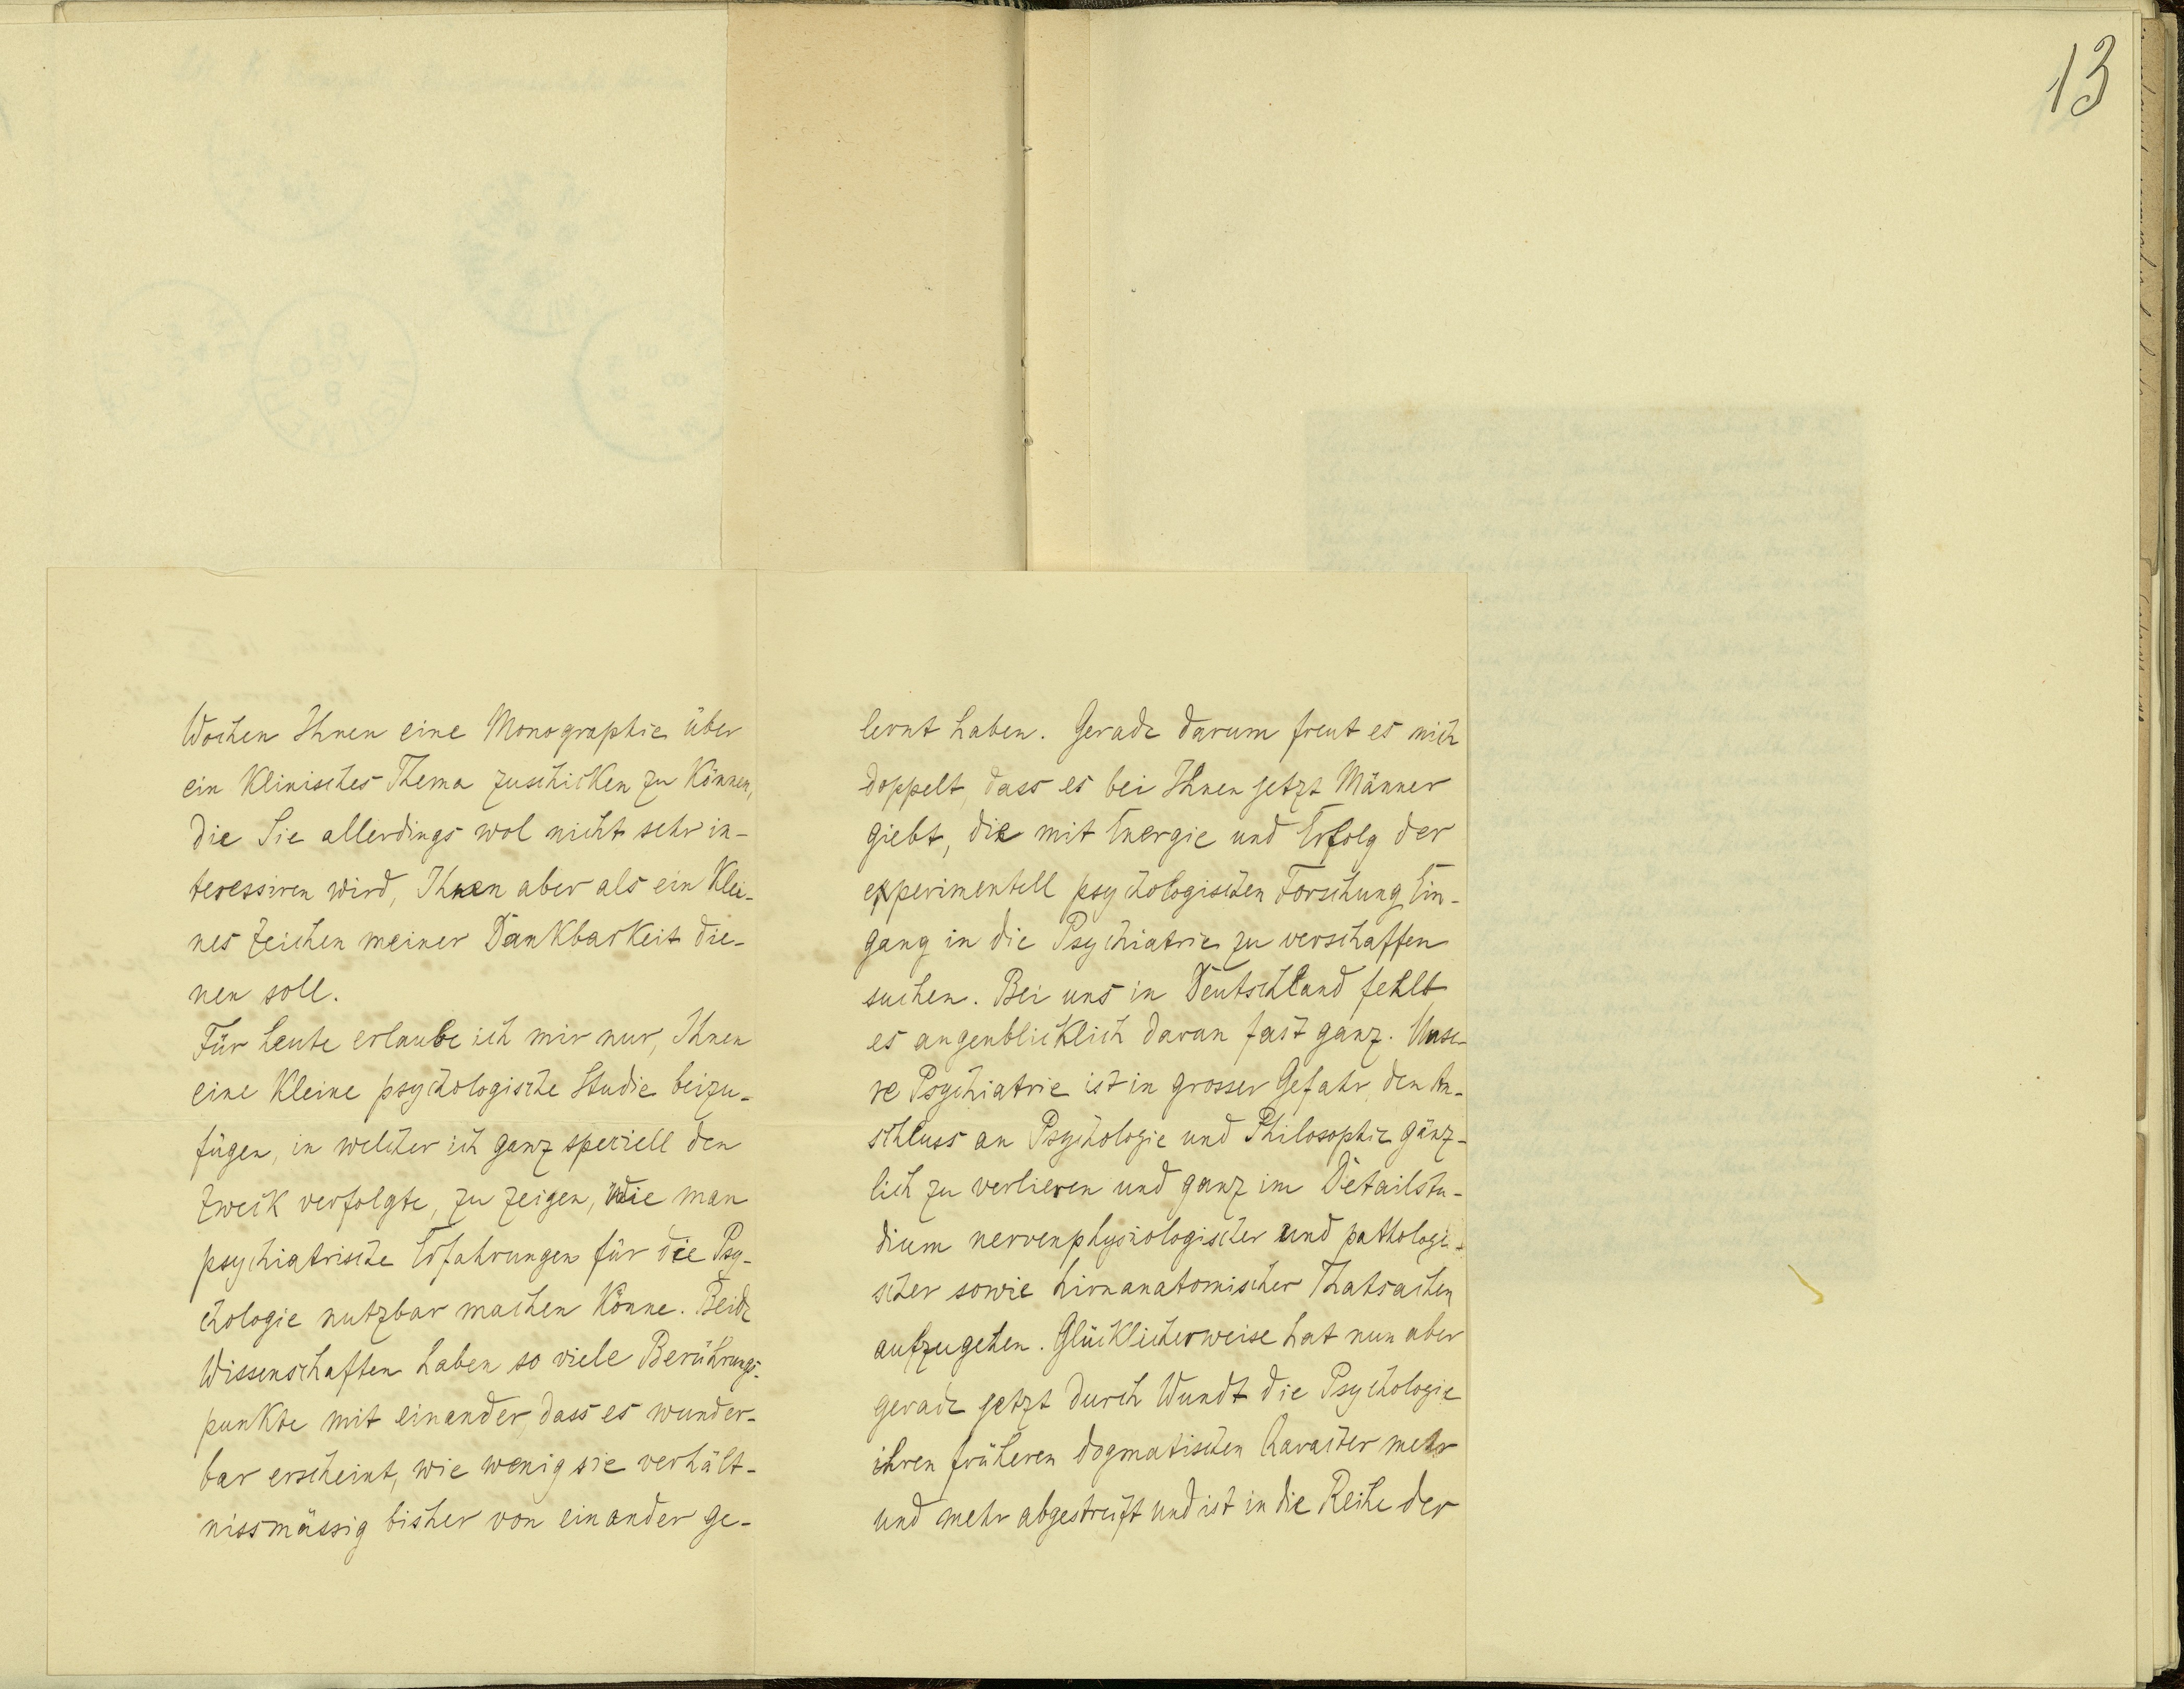 13
Wochen Ihnen eine Monographie über
ein klinisches Thema zuschicken zu können,
die Sie allerdings wol nicht sehr in-
teressiren wird, Ihnen aber als ein klei-
nes Zeichen meiner Dankbarkeit die-
nen soll.
Für heute erlaube ich mir nur, Ihnen
eine kleine psychologische Studie beizu-
fügen, in welcher ich ganz speciell den
Zweck verfolgte, zu zeigen, wie man
psychiatrische Erfahrungen für die Psy-
chologie nutzbar machen könne. Beide
Wissenschaften haben so viele Berührungs-
punkte mit einander, dass es wunder-
bar erscheint, wie wenig sie verhält-
nissmässig bisher von einander ge-
lernt haben. Gerade darum freut es mich
doppelt, dass es bei Ihnen jetzt Männer
giebt, die mit Energie und Erfolg der
experimentell psychologischen Forschung Ein-
gang in die Psychiatrie zu verschaffen
suchen. Bei uns in Deutschland fehlt
es augenblicklich daran fast ganz. Unse-
re Psychiatrie ist in grosser Gefahr, den An-
schluss an Psychologie und Philosophie gänz-
lich zu verlieren und ganz im Detailstu-
dium nervenphysiologischer und pathologi-
scher sowie hirnanatomischer Thatsachen
aufzugehen. Glücklicherweise hat nun aber
gerade jetzt durch Wundt die Psychologie
ihren früheren dogmatischen Character mehr
und mehr abgestreift und ist in die Reihe der